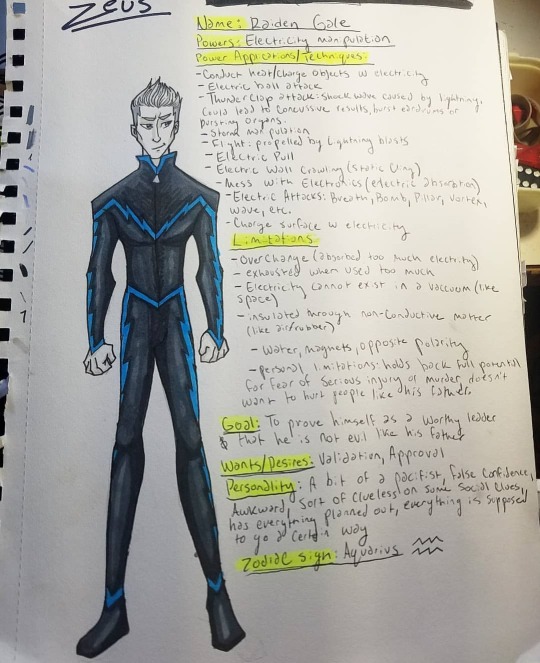 Zeus
Name: Raiden Gale
Powers: Electricity manipulation
Power Applications/Techniques:
- Conduct heat/charge objects w electricity
- Electric ball attack
- Thunderclap attack: shock wave caused by lightning.
Could lead to concussive results, burst eardrums or
bursting organs.
- Storm manipulation
- Flight: propelled by lightning blasts
- Electric Pull
- Electric Wall Crawling (static cling)
- Mess with Electronics (electric absorbtion)
- Electric Attacks: Breath, Bomb, Pillar, vortex,
wave, etc.
- Charge surface w electricity
Limitations
- OverCharge (absorbed too much electricity)
- exhausted when used too much
- Electricity cannot exist in a vaccum (like
space)
- insulated through non-Conductive matter
(like air/rubber)
- Water, magnets, opposite polarity
- personal limitations: holds back full potential
for fear of serious injury or murder, doesn't
want to hurt people like his father.
Goal: To prove himself as a worthy leader
& that he is not evil like his father
Wants/Desires: Validation, Approval
Personality: A bit of a pacifist, false confidence,
Awkward, sort of clueless on some social clues,
has everything planned out, everything is supposed
to go a certain way
Zodiac sign: Aquarius